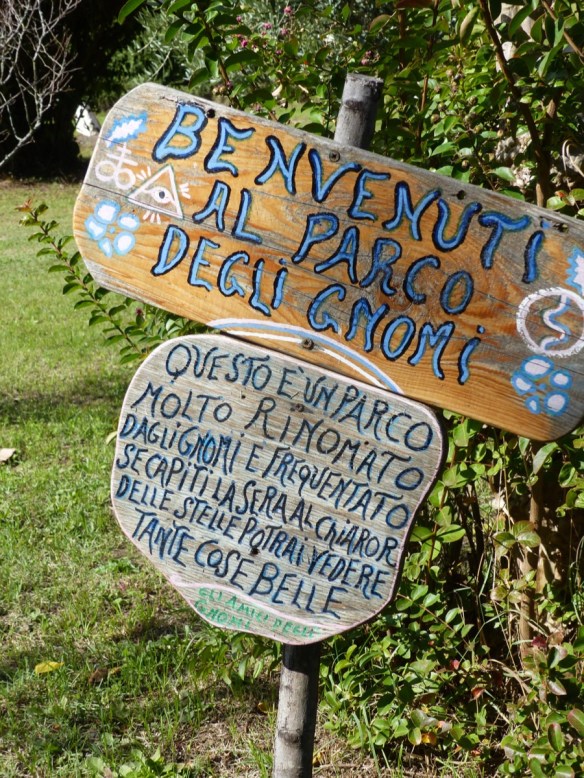 BENVENUTI
AL PARCO
DEGLI GNOMI
QUESTO È UN PARCO
MOLTO RINOMATO
DAGLI GNOMI E FREQUENTATO
SE CAPITI LA SERA AL CHIAROR
DELLE STELLE POTRAI VEDERE
TANTE COSE BELLE
GLI AMICI DEGLI
GNOMI